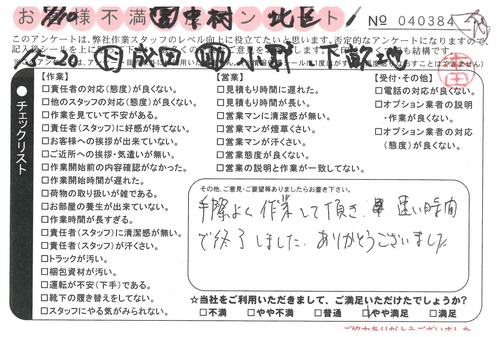 お客様不満アンケート
No 040384
東村 北区
このアンケートは、弊社作業スタッフのレベル向上に役立てたいと思います。否定的なアンケートになりますので、
5-20
成田
チェックリスト
【作業】
□責任者の対応(態度)が良くない。
□他のスタッフの対応(態度)が良くない。
□作業を見ていて不安がある。
□責任者(スタッフ)に好感が持てない。
□お客様への挨拶が出来ていない。
□ご近所への挨拶・気遣いが無い。
□作業開始前の内容確認がなかった。
□作業開始時間が遅れた。
□荷物の取り扱いが雑である。
□お部屋の養生が出来ていない。
□作業時間が長すぎる。
□責任者(スタッフ)に清潔感が無い。
□責任者(スタッフ)が汗くさい。
□トラックが汚い。
□梱包資材が汚い。
□運転が不安(下手)である。
□靴下の履き替えをしてない。
□スタッフにやる気がみられない。
【営業】
□見積もり時間に遅れた。
□見積もり時間が長い。
□営業マンに清潔感が無い。
□営業マンが煙草くさい。
□営業マンが汗くさい。
□営業態度が良くない。
□営業の説明と作業が一致してない。
【受付・その他】
□電話の対応が良くない。
□オプション業者の説明
・作業が良くない。
□オプション業者の対応
(態度)が良くない。
その他、ご意見・ご要望等ありましたらお書き下さい。
手際よく作業して頂き、速い時間
で終了しました。ありがとうございました
☆当社をご利用いただきまして、ご満足いただけたでしょうか?
□不満 □やや不満 □普通 □やや満足 □満足
ご協力ありがとうございました